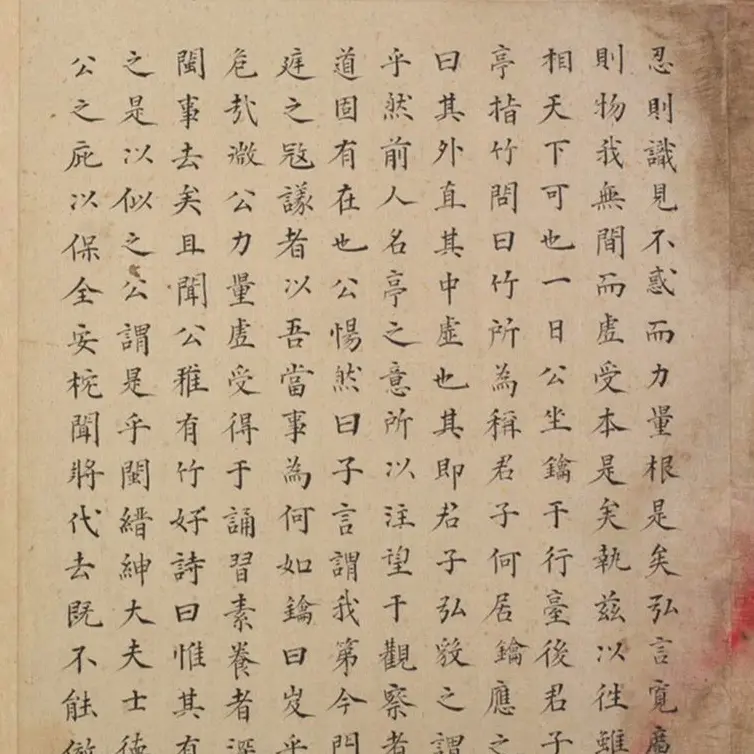 忍則識見不惑而力量根是矣弘言寬廣
則物我無間而虛受本是矣執兹以徃雖
相天下可也一日公坐鑰于行臺後君子
亭指竹問曰竹所為稱君子何居鑰應之
曰其外直其中虛也其即君子弘毅之謂
乎然前人名亭之意所以注望于觀察者
道固有在也公惕然曰子言謂我第今閩
庭之寇議者以吾當事為何如鑰曰岌乎
危哉微公力量虛受得于誦習素養者深
閩事去矣且聞公稚有竹好詩曰惟其有
之是以似之公謂是乎閩縉紳大夫士德
公之庇以保全妥枕聞將代去既不能